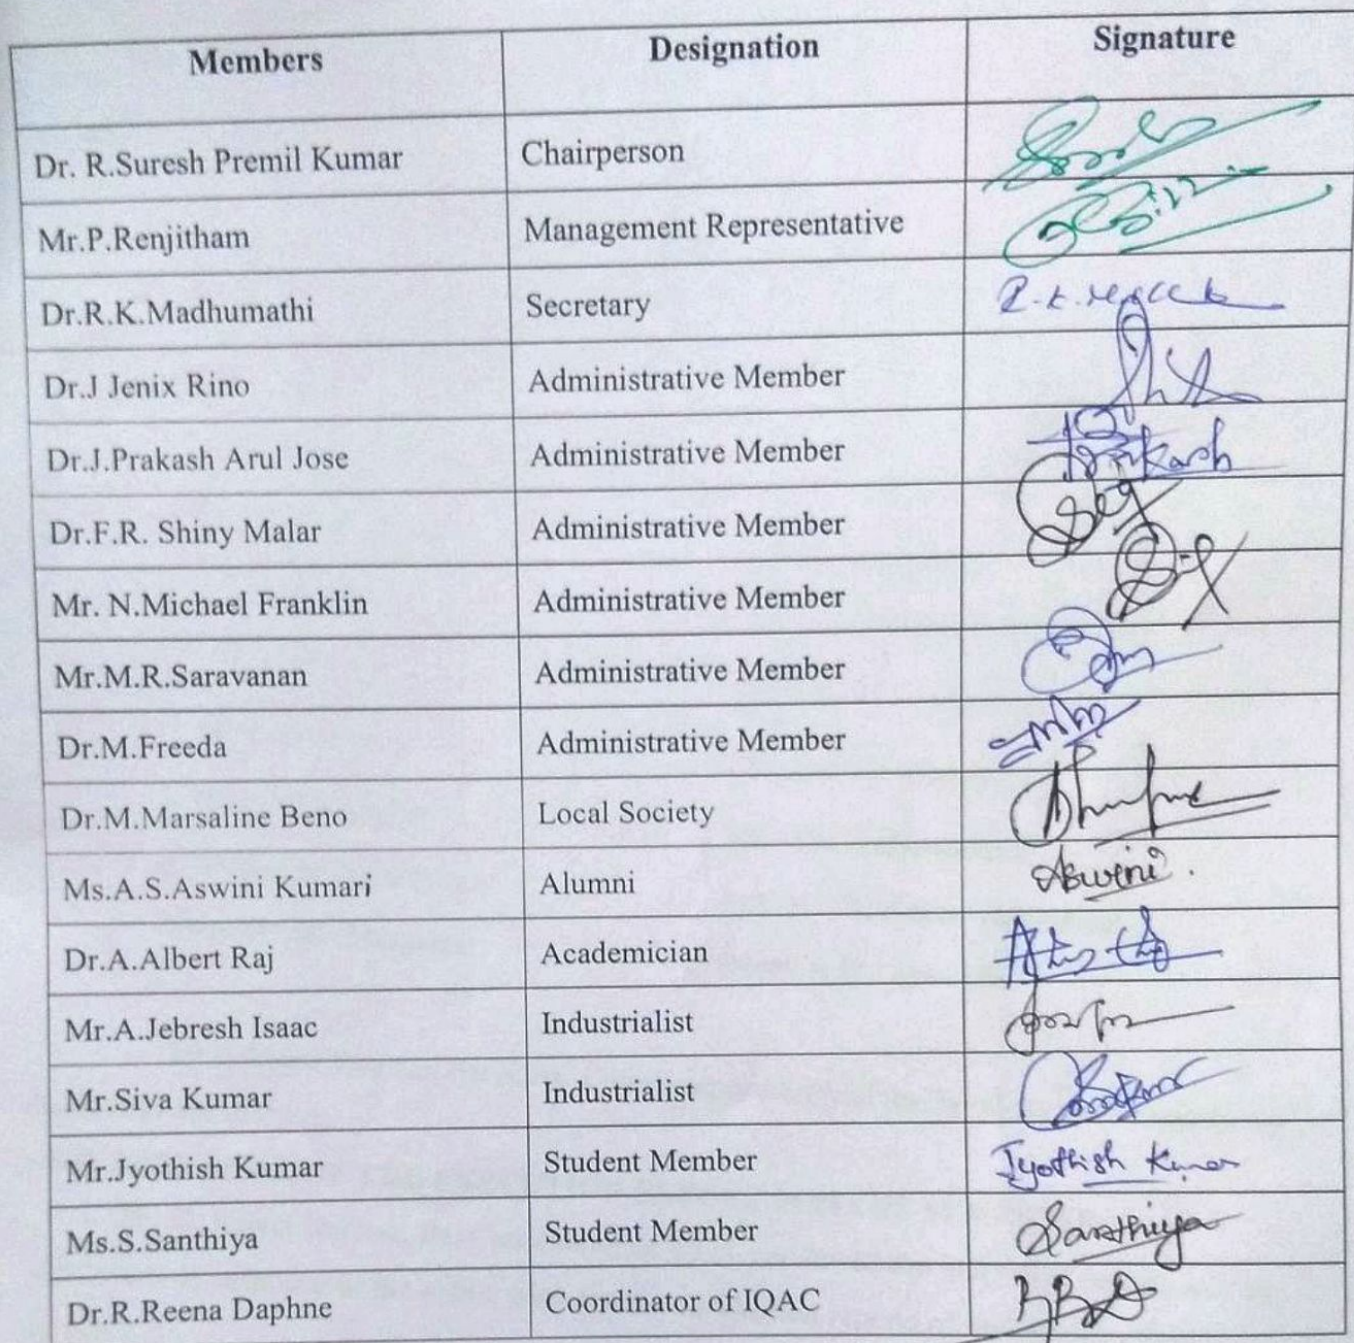 Members Designation Signature
Dr. R.Suresh Premil Kumar Chairperson
Mr.P.Renjitham Management Representative
Dr.R.K.Madhumathi Secretary
Dr.J Jenix Rino Administrative Member
Dr.J.Prakash Arul Jose Administrative Member Prakash
Dr.F.R. Shiny Malar Administrative Member
Mr. N.Michael Franklin Administrative Member
Mr.M.R.Saravanan Administrative Member
Dr.M.Freeda Administrative Member
Dr.M.Marsaline Beno Local Society
Ms.A.S.Aswini Kumari Alumni Aswini.
Dr.A.Albert Raj Academician
Mr.A.Jebresh Isaac Industrialist
Mr.Siva Kumar Industrialist
Mr.Jyothish Kumar Student Member Jyothish Kumar
Ms.S.Santhiya Student Member Santhiya
Dr.R.Reena Daphne Coordinator of IQAC